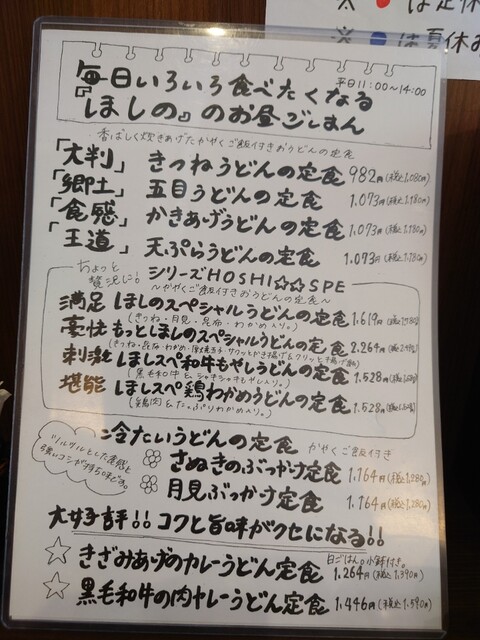 ※ ● は定休
※ ● は夏休み
毎日いろいろ食べたくなる
平日11:00〜14:00
『ほしの』のお昼ごはん
香ばしく炊きあげたかやくご飯付きおうどんの定食
「大判」 きつねうどんの定食 982円(税込1,080円)
「郷土」 五目うどんの定食 1.073円(税込1,180円)
「食感」 かきあげうどんの定食 1.073円(税込1,180円)
「王道」 天ぷらうどんの定食 1.073円(税込1,180円)
ちょっと贅沢に!
シリーズHOSHI☆☆SPE
〜かやくご飯付きおうどんの定食〜
満足 ほしのスペシャルうどんの定食 1.619円
(きつね・月見・昆布・わかめ入り。)
豪快 もっとほしのスペシャルうどんの定食 2.264円
刺激 ほしスペ和牛もやしうどんの定食 1.528円
(黒毛和牛&シャキシャキもやし入り。)
堪能 ほしスペ鶏わかめうどんの定食 1.528円
(鶏肉&たっぷりわかめ入り。)
冷たいうどんの定食 かやくご飯付き
ツルツルとした食感と
強いコシが持ち味です。
さぬきのぶっかけ定食 1.164円(税込1,280円)
月見ぶっかけ定食 1.164円(税込1,280円)
大好評!!コクと旨味がクセになる!!
白ごはん。小鉢付き。
☆ きざみあげのカレーうどん定食 1.264円(税込1,390円)
☆ 黒毛和牛の肉カレーうどん定食 1.446円(税込1,590円)